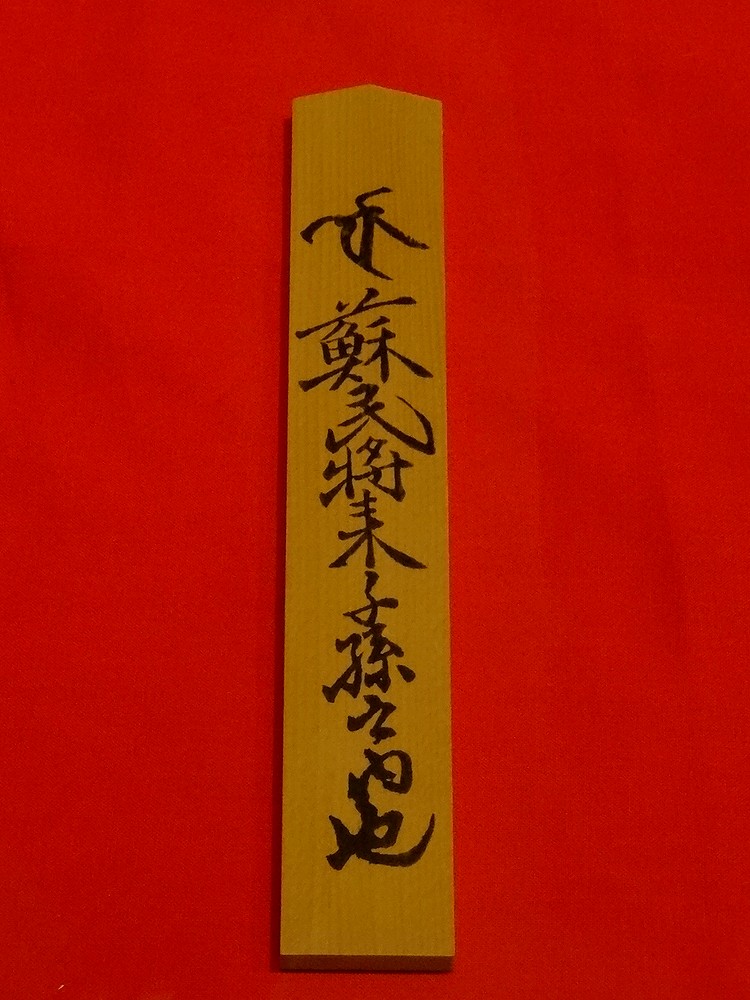 蘇民将来子孫之門也